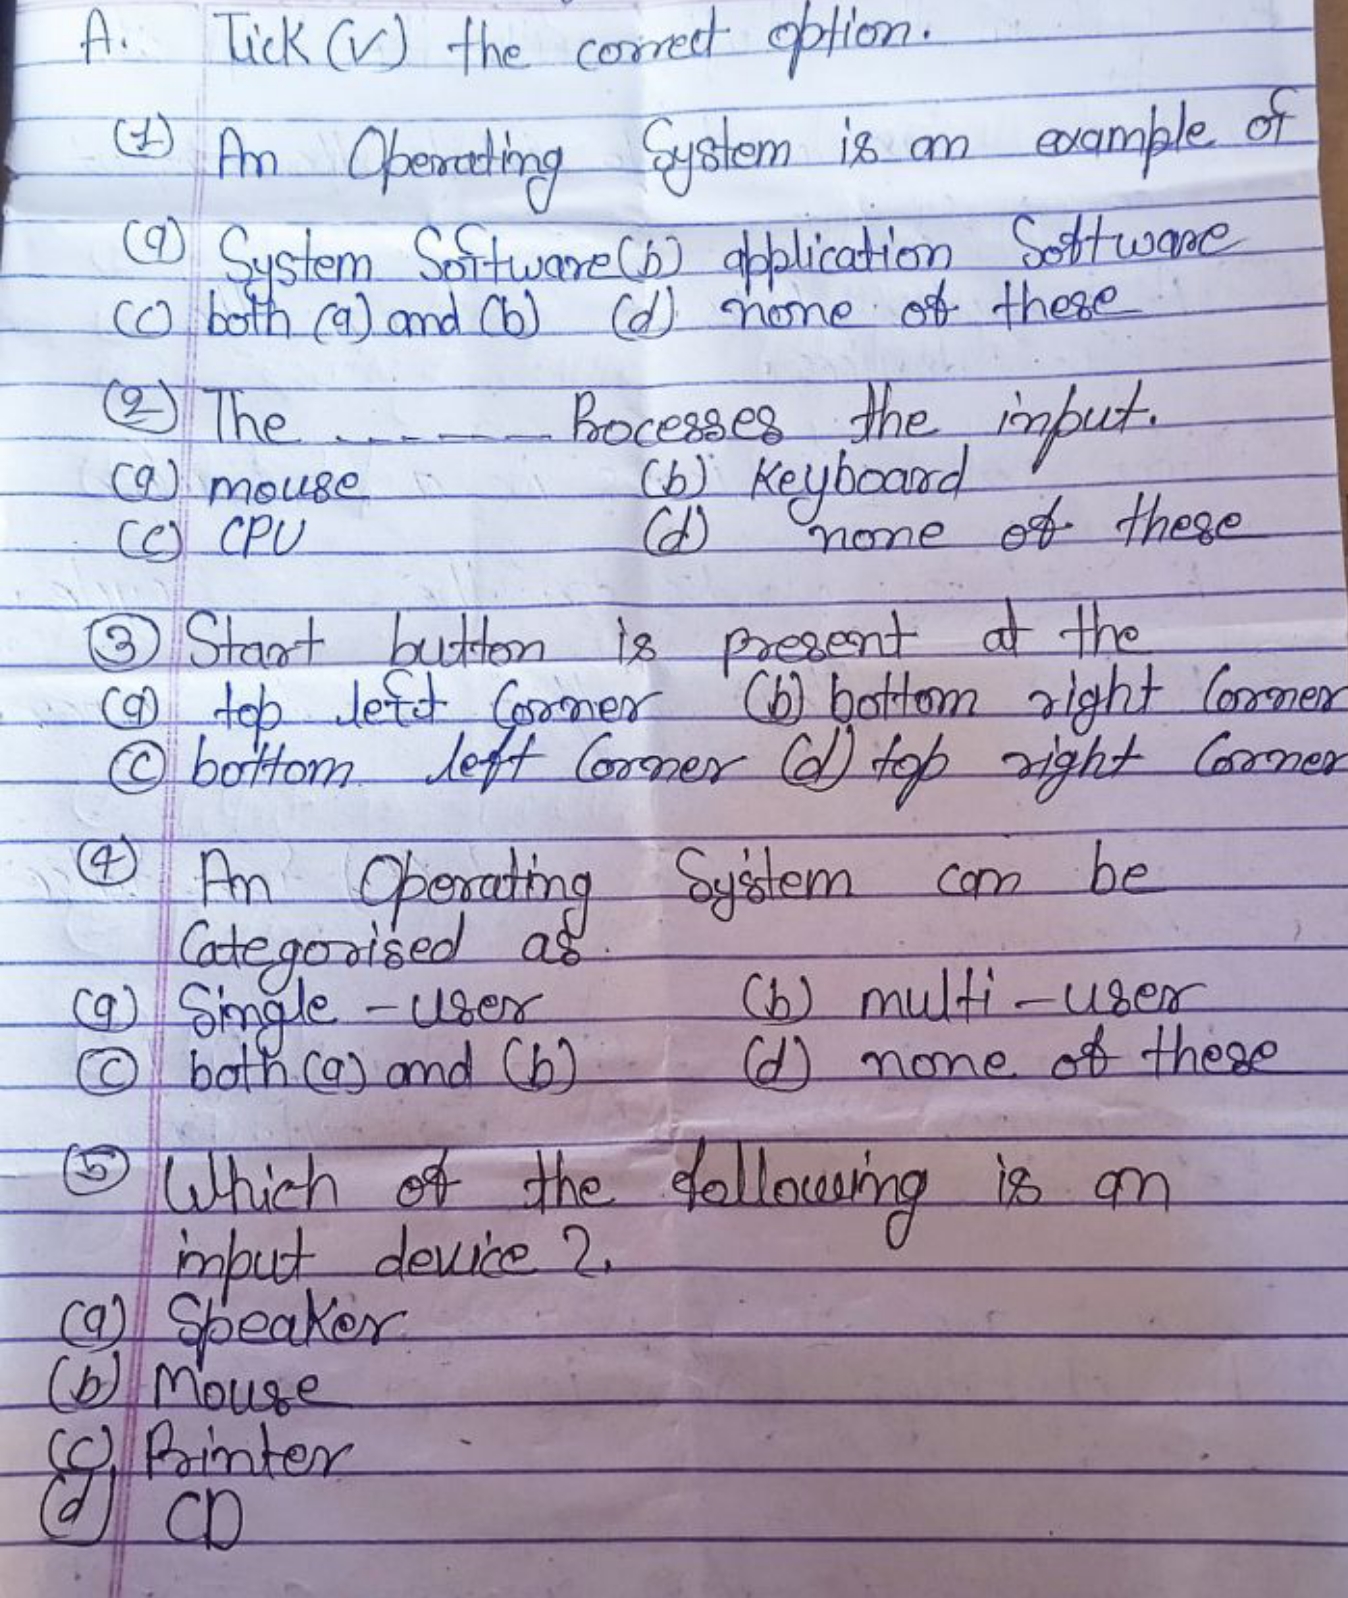 A. Tick (✓) the correct option.
(1) An Operating System is an example of
(a) System Software (b) application Software
(c) both (a) and (b) (d) none of these
(2) The ------ Processes the input.
(a) mouse (b) Keyboard
(c) CPU (d) none of these
(3) Start button is present at the
(a) top left Corner (b) bottom right Corner
(c) bottom left Corner (d) top right Corner
(4) An Operating System can be
Categorised as.
(a) Single-user (b) multi-user
(c) both (a) and (b) (d) none of these
(5) Which of the following is an
input device?.
(a) Speaker
(b) Mouse
(c) Printer
(d) CD